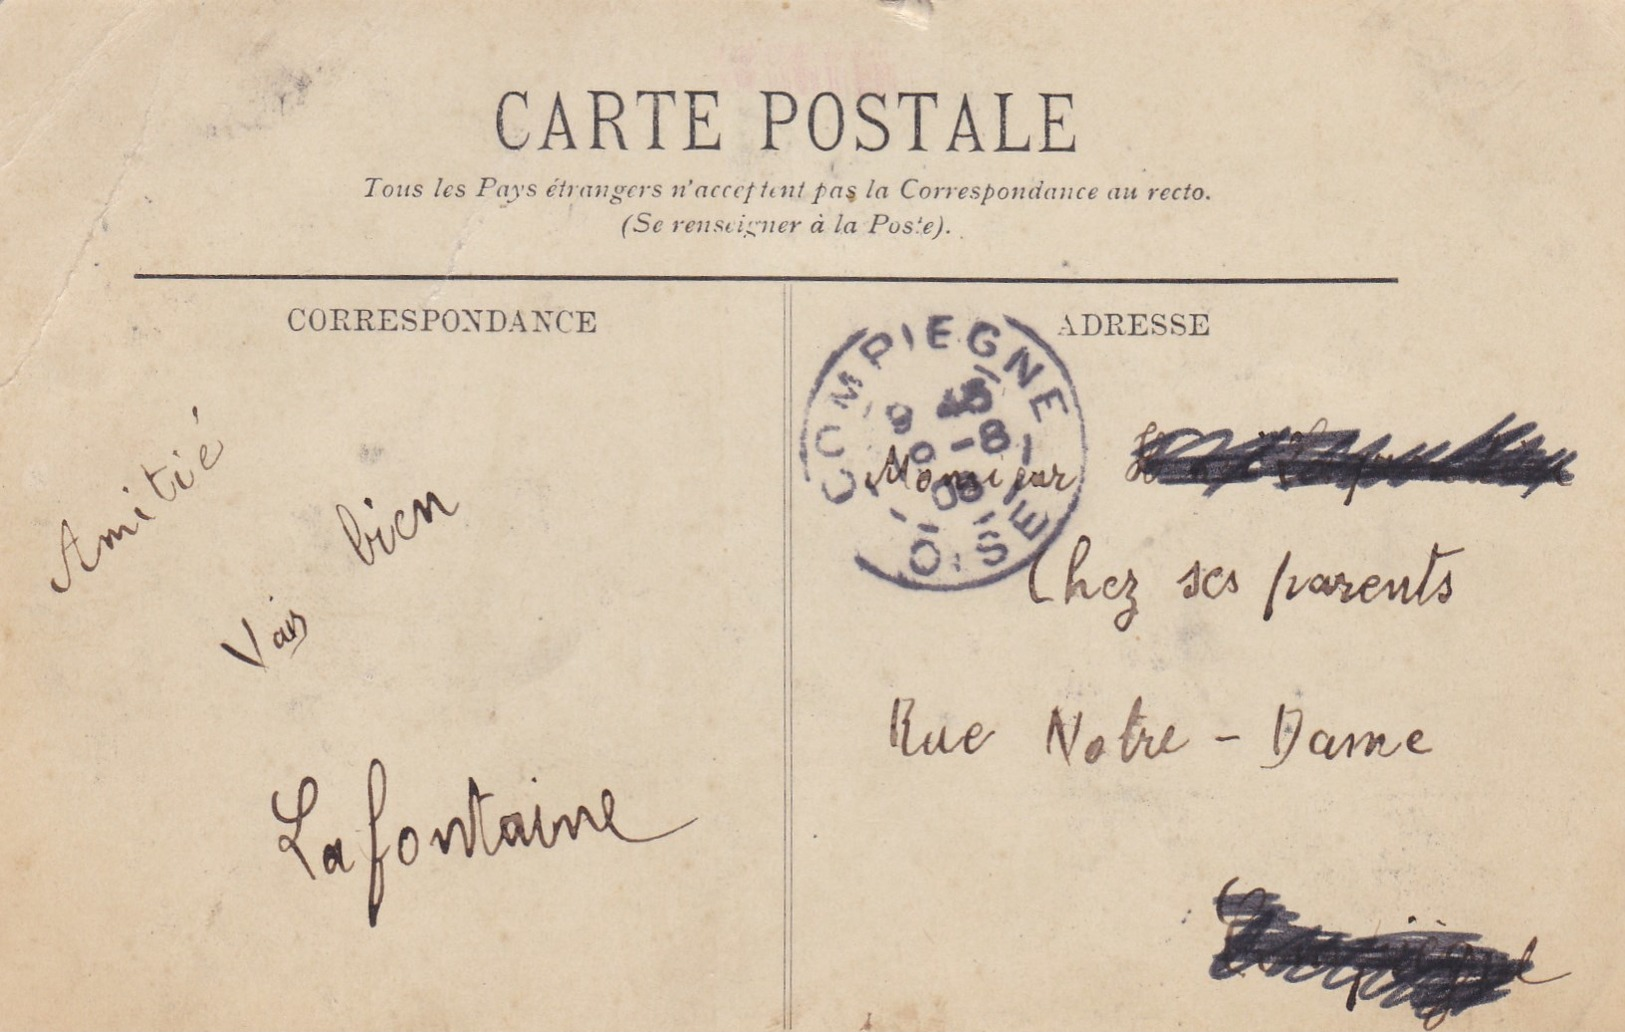 CARTE POSTALE
Tous les Pays étrangers n'acceptent pas la Correspondance au recto.
(Se renseigner à la Poste).
CORRESPONDANCE
ADRESSE
COMPIEGNE
OISE
Monsieur
Chez ses parents
Rue Notre-Dame
Amitié
Vais bien
Lafontaine